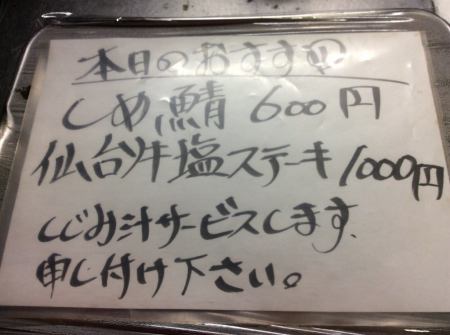 本日のおすすめ
しめ鯖 600円
仙台牛塩ステーキ 1000円
しじみ汁サービスします、
申し付け下さい。